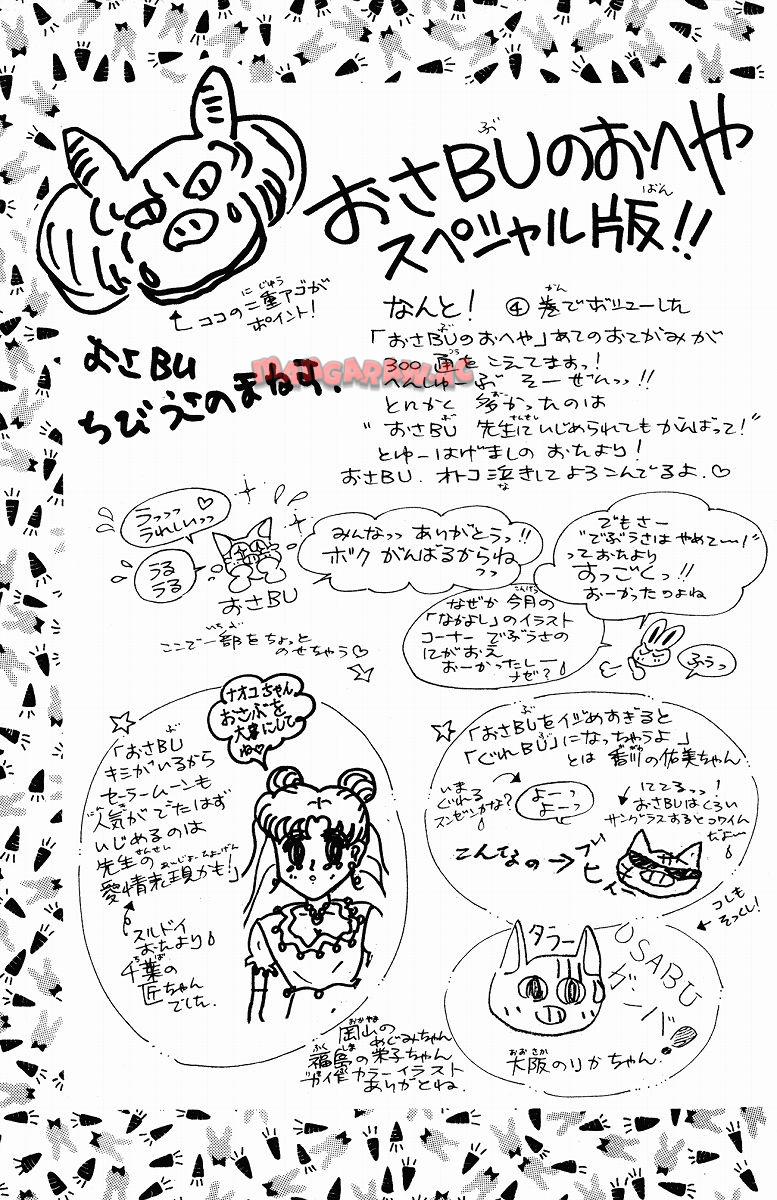 おさBUのおへや
スペシャル版!!
ココの二重アゴが
ポイント!
おさBU
ちびうさのまねす、
なんと! ④巻でボリューした
「おさBUのおへや」あてのおてがみが
300通をこえてますっ!
へんしゅーぶ そーぜんっっ!!
とにかく 多かったのは
"おさBU 先生にいじめられてもがんばって!"
とゆーはげましの おたより!
おさBU、オトコ泣きしてよろこんでるよ。♡
うっっっ♡
うれしいっっ
うる
うる
おさBU
みんなっっ ありがとうっ!!
ボク がんばるからね
っっ
でもさー
"でぶうさはやめてー!"
っておたより
すっごくっ!!
おーかったのよね
なぜか 今月の
「なかよし」のイラスト
コーナー でぶうさの
にがおえ
おーかったしー
ナゼ?
ぶうっ
ここで一部をちょっと
のせちゃう♡
ナオコちゃん
おさぶを
大事にして
ね♡
「おさBU
キミがいるから
セーラームーンも
人気がでたはず
いじめるのは
先生の
愛情表現かも!」
スルドイ
おたより
千葉の
匠ちゃん
でした。
「おさBUをイジめすぎると
「ぐれBU」になっちゃうよ」
とは 香川の佑美ちゃん
いま
ぐれる
スンゼンかな?
よーっ
よーっ
にてるっっ!
おさBUはくろい
サングラスするとコワイん
だよー
こんなの→
ブヒィ
コレも
そっくし!
タラー
USABU
ガンバ!
大阪のりかちゃん
岡山の めぐみちゃん
福島の栄子ちゃん
力作カラーイラスト
ありがとね。
MANGARAW.AC